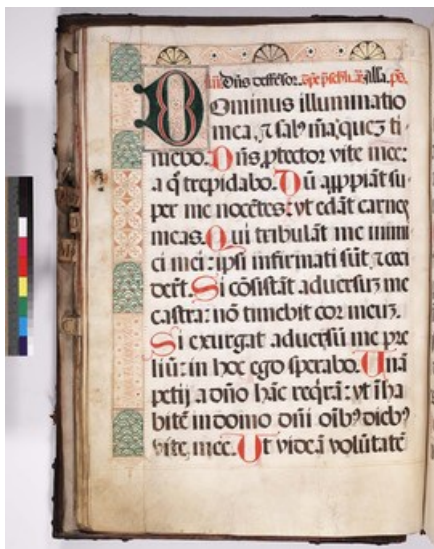 Dñs deffēsor. Alla. ps.
Dominus illuminatio
mea, ⁊ salꝰ m̃a, quez ti-
mebo. Dñs ꝓtector vite mee:
a q̃ trepidabo. Dũ aꝓpiãt su-
per me nocẽtes: vt edãt carnes
meas. Qui tribulãt me inimi
ci mei: ipsi infirmati sũt ⁊ ceci
derũt. Si cõsistãt aduersuz me
castra: nõ timebit cor meuz.
Si exurgat aduersũ me pre
liũ: in hoc ego sperabo. Unã
petij a dño hãc reqrã: vt ĩha
bitẽ in domo dñi oĩbꝰ diebꝰ
vite mee. Ut videã volũtatẽ